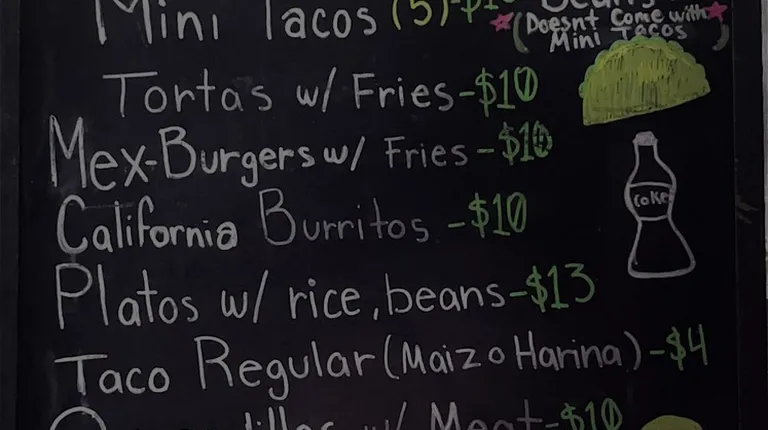 Mini Tacos (5)-$10
Beans
(Doesnt Come with
Mini Tacos)
Tortas w/ Fries-$10
Mex-Burgers w/ Fries-$10
California Burritos-$10
Coke
Platos w/ rice, beans-$13
Taco Regular (Maiz o Harina)-$4
w/ Meat-$10